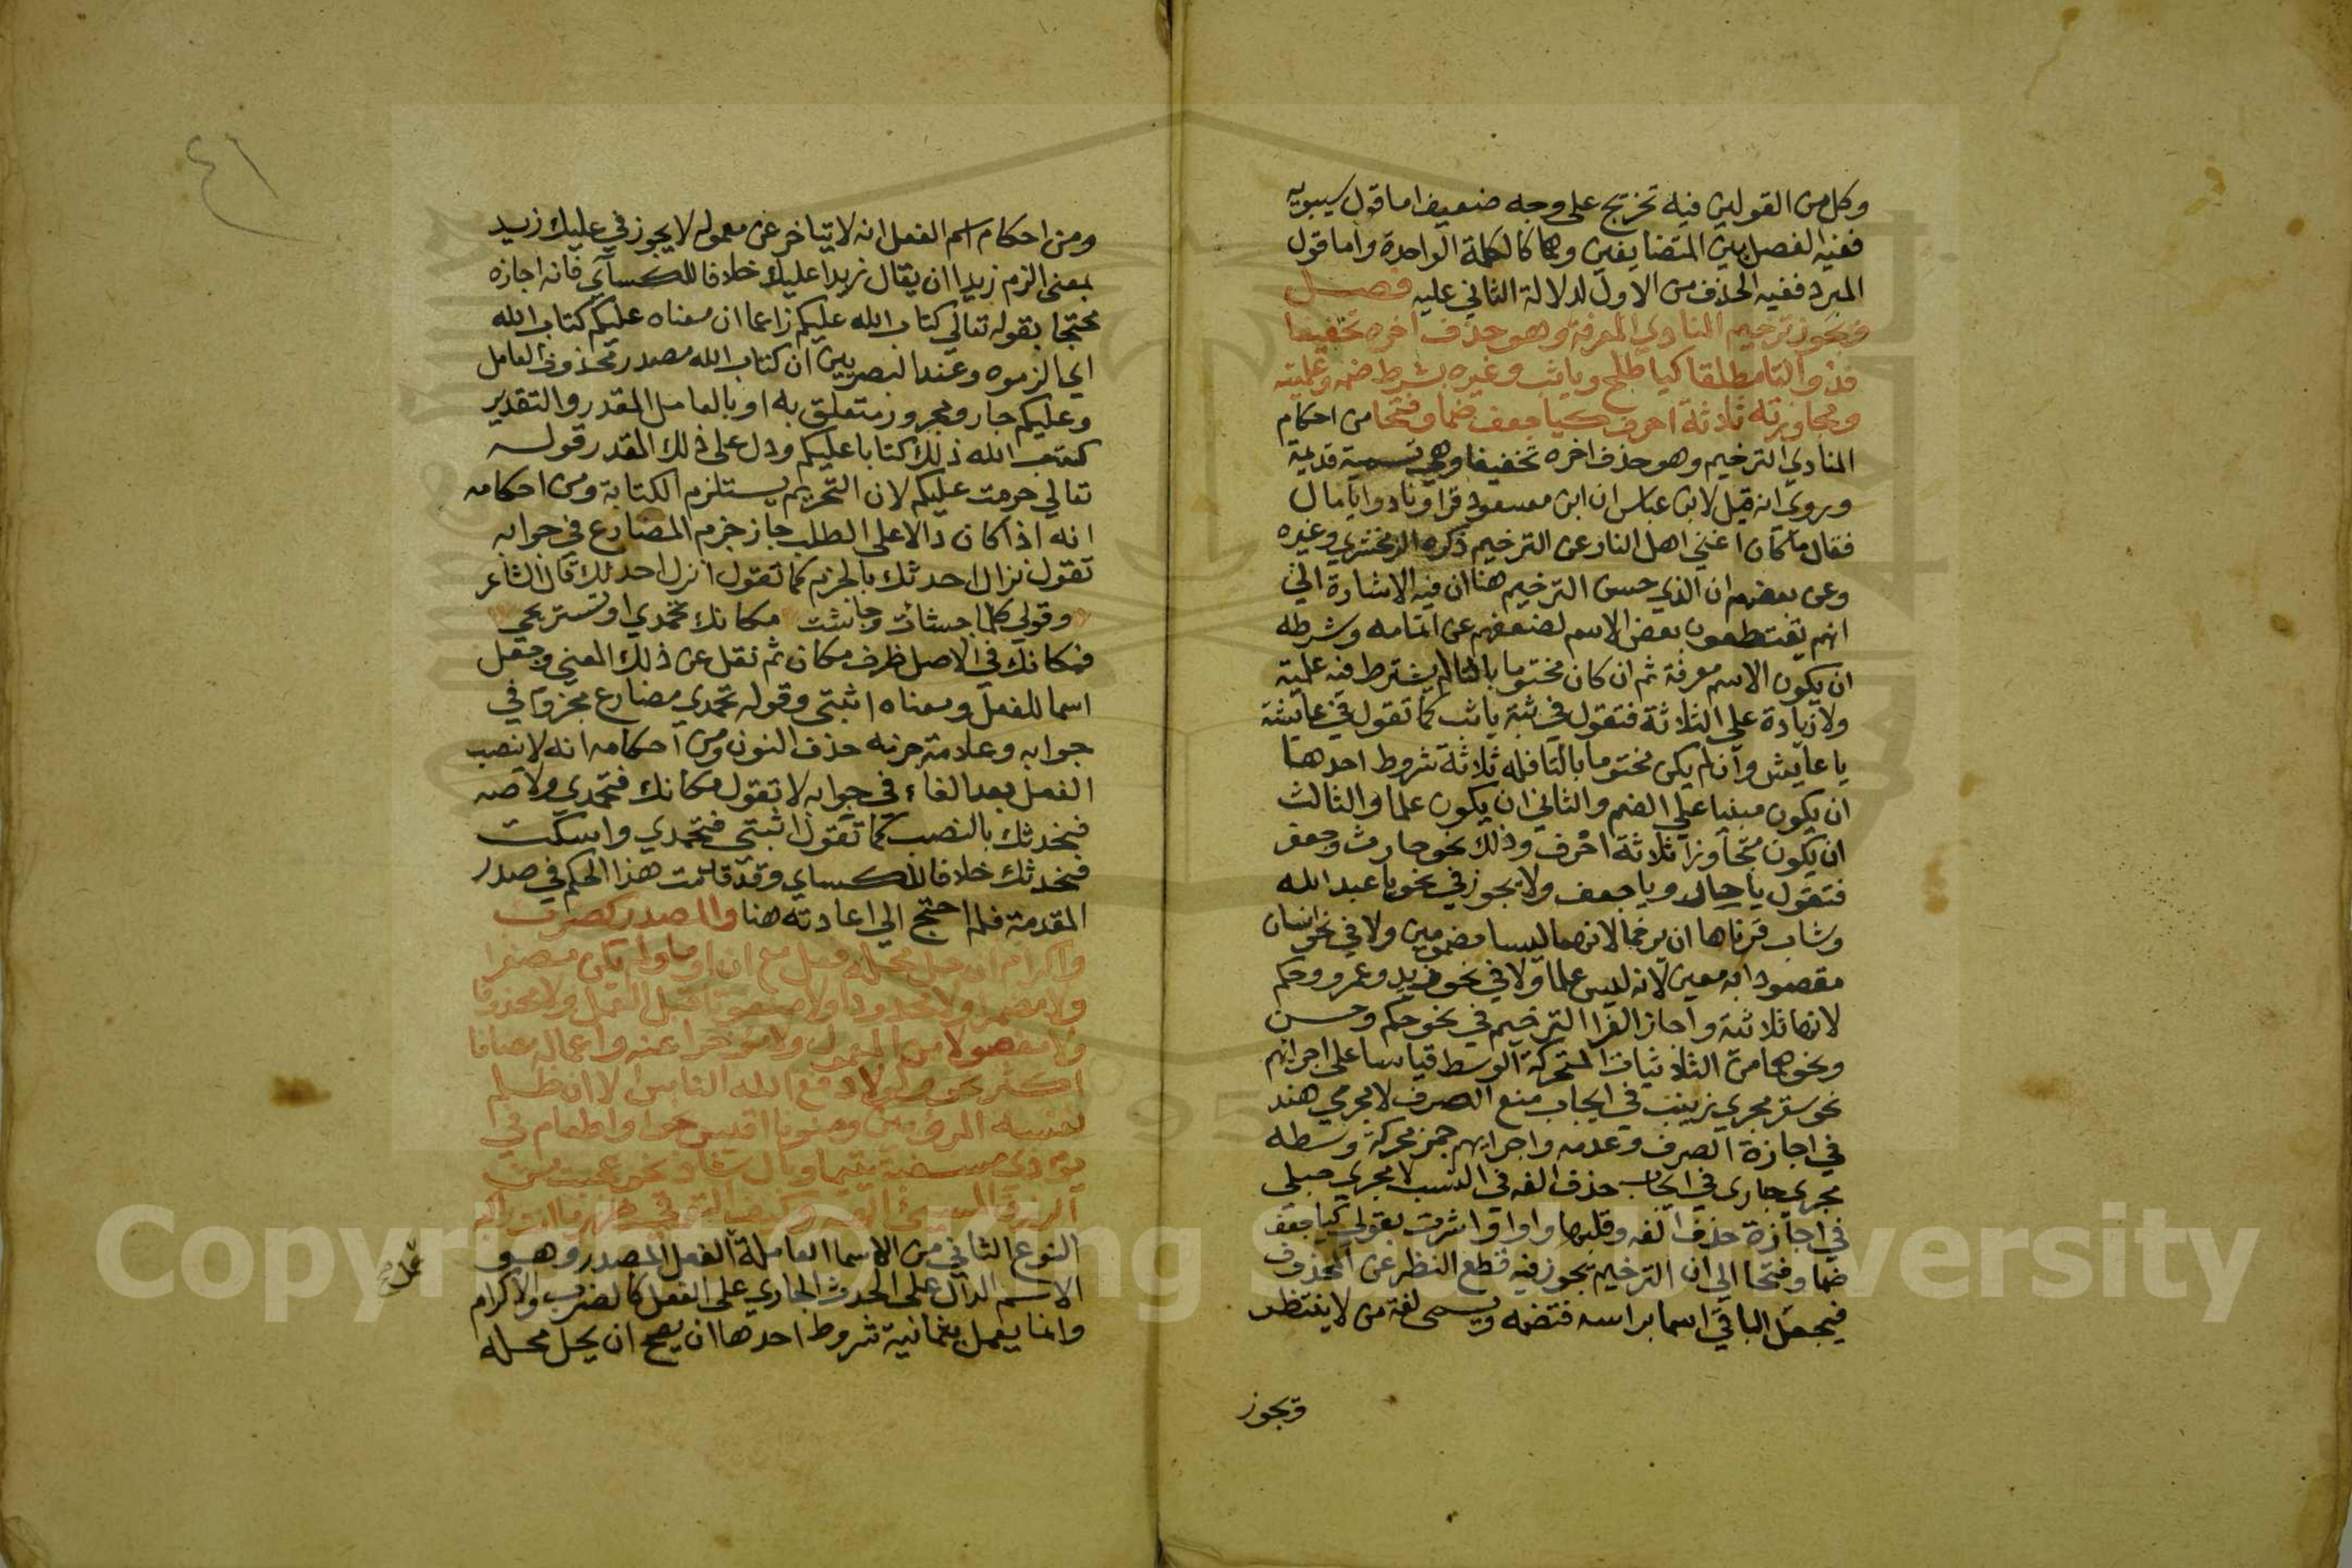 وكل من القولين فيه تخريج على وجه ضعيف اما قول سيبويه
ففيه الفصل بين المتضايفين وهما كالكلمة الواحدة واما قول
المبرد ففيه الحذف من الاول لدلالة الثاني عليه فصل
ويجوز ترخيم المنادي المعرفة وهو حذف اخره تخفيفا
فذو التا مطلقا كيا طلح وياثب وغيره بشرط ضمه وعلميته
ومجاوزته ثلاثة احرف كيا جعف ضما وفتحا من احكام
المنادي الترخيم وهو حذف اخره تخفيفا وهي تسمية قديمة
وروي انه قيل لابن عباس ان ابن مسعود قرا ونادوا يا مال
فقال ما كان اغني اهل النار عن الترخيم ذكره الزمخشري وغيره
وعن بعضهم ان الذي حسن الترخيم هنا ان فيه الاشارة الي
انهم يقتطعون بعض الاسم لضعفهم عن اتمامه وشرطه
ان يكون الاسم معرفة ثم ان كان مختوما بالتا لم يشترط فيه علمية
ولا زيادة علي الثلاثة فتقول في ثبة ياثب كما تقول في عايشة
يا عايش وان لم يكن مختوما بالتا فله ثلاثة شروط احدها
ان يكون مبنيا علي الضم والثاني ان يكون علما والثالث
ان يكون متجاوزا ثلاثة احرف وذلك نحو حارث وجعفر
فتقول يا حار ويا جعف ولا يجوز في نحو يا عبد الله
وشاب قرناها ان يرخما لانهما ليسا مضمومين ولا في نحو انسان
مقصودا به معين لانه ليس علما ولا في نحو زيد وعمرو وحكم
لانها ثلاثية واجاز الفرا الترخيم في نحو حكم وحسن
ونحوهما من الثلاثيات المتحركة الوسط قياسا على اجرائهم
نحو سقر مجري زينب في ايجاب منع الصرف لا مجري هند
في اجازة الصرف وعدمه واجرايهم جمزي محركة وسطه
مجري حباري في ايجاب حذف الفه في النسب لا مجري حبلي
في اجازة حذف الفه وقلبها واوا واشرت بقولي كيا جعف
ضما وفتحا الي ان الترخيم يجوز فيه قطع النظر عن المحذوف
فيجعل الباقي اسما براسه فتضمه ويسمى لغة من لا ينتظر
ويجوز
٤١
ومن احكام اسم الفعل انه لا يتاخر عن معموله لا يجوز في عليك زيد
بمعنى الزم زيدا ان يقال زيدا عليك خلافا للكسآي فانه اجازه
محتجا بقوله تعالي كتاب الله عليكم زاعما ان معناه عليكم كتاب الله
اي الزموه وعند البصريين ان كتاب الله مصدر محذوف العامل
وعليكم جار ومجرور متعلق به او بالعامل المقدر والتقدير
كتب الله ذلك كتابا عليكم ودل على ذلك المقدر قوله
تعالي حرمت عليكم لان التحريم يستلزم الكتابة ومن احكامه
انه اذا كان دالا على الطلب جاز جزم المضارع في جوابه
تقول نزال احدثك بالجزم كما تقول انزل احدثك قال الشاعر
وقولي كلما جشات وجاشت مكانك تحمدي او تستريحي
فمكانك في الاصل ظرف مكان ثم نقل عن ذلك المعني وجعل
اسما للفعل ومعناه اثبتي وقوله تحمدي مضارع مجزوم في
جوابه وعلامة جزمه حذف النون ومن احكامه انه لا ينصب
الفعل بعد الفاء في جوابه لا تقول مكانك فتحمدي ولا صه
فنحدثك بالنصب كما تقول اثبتي فتحمدي واسكت
فنحدثك خلافا للكساي وقد قدمت هذا الحكم في صدر
المقدمة فلم احتج الي اعادته هنا والمصدر كضرب
واكرام ان حل محله فعل مع ان او ما ولم يكن مصغرا
ولا مضمرا ولا محدودا ولا منعوتا قبل العمل ولا محذوفا
ولا مفصولا من المعمول ولا موخرا عنه واعماله مضافا
اكثر نحو ولولا دفع الله الناس الا ان ظلم
نفسه المرء بين ومنونا اقيس نحو او اطعام في
يوم ذي مسغبة يتيما وبال شاذ نحو عجبت من
الرزق المسيء الهه وكيف التوقي ظهر ما انت راكبه
النوع الثاني من الاسما العاملة الفعل المصدر وهو
الاسم الدال على الحدث الجاري على الفعل كالضرب والاكرام
وانما يعمل بثمانية شروط احدها ان يصح ان يحل محله
عمل